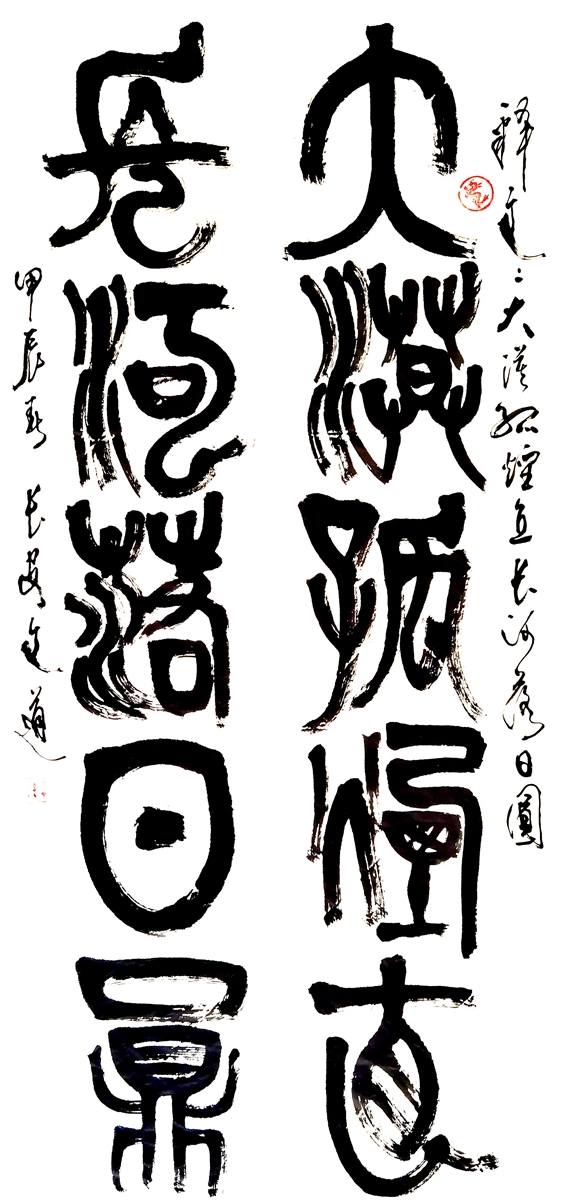 釋文：大漠孤煙直長河落日圓
大漠孤煙直
長河落日員
甲辰春 長安文道